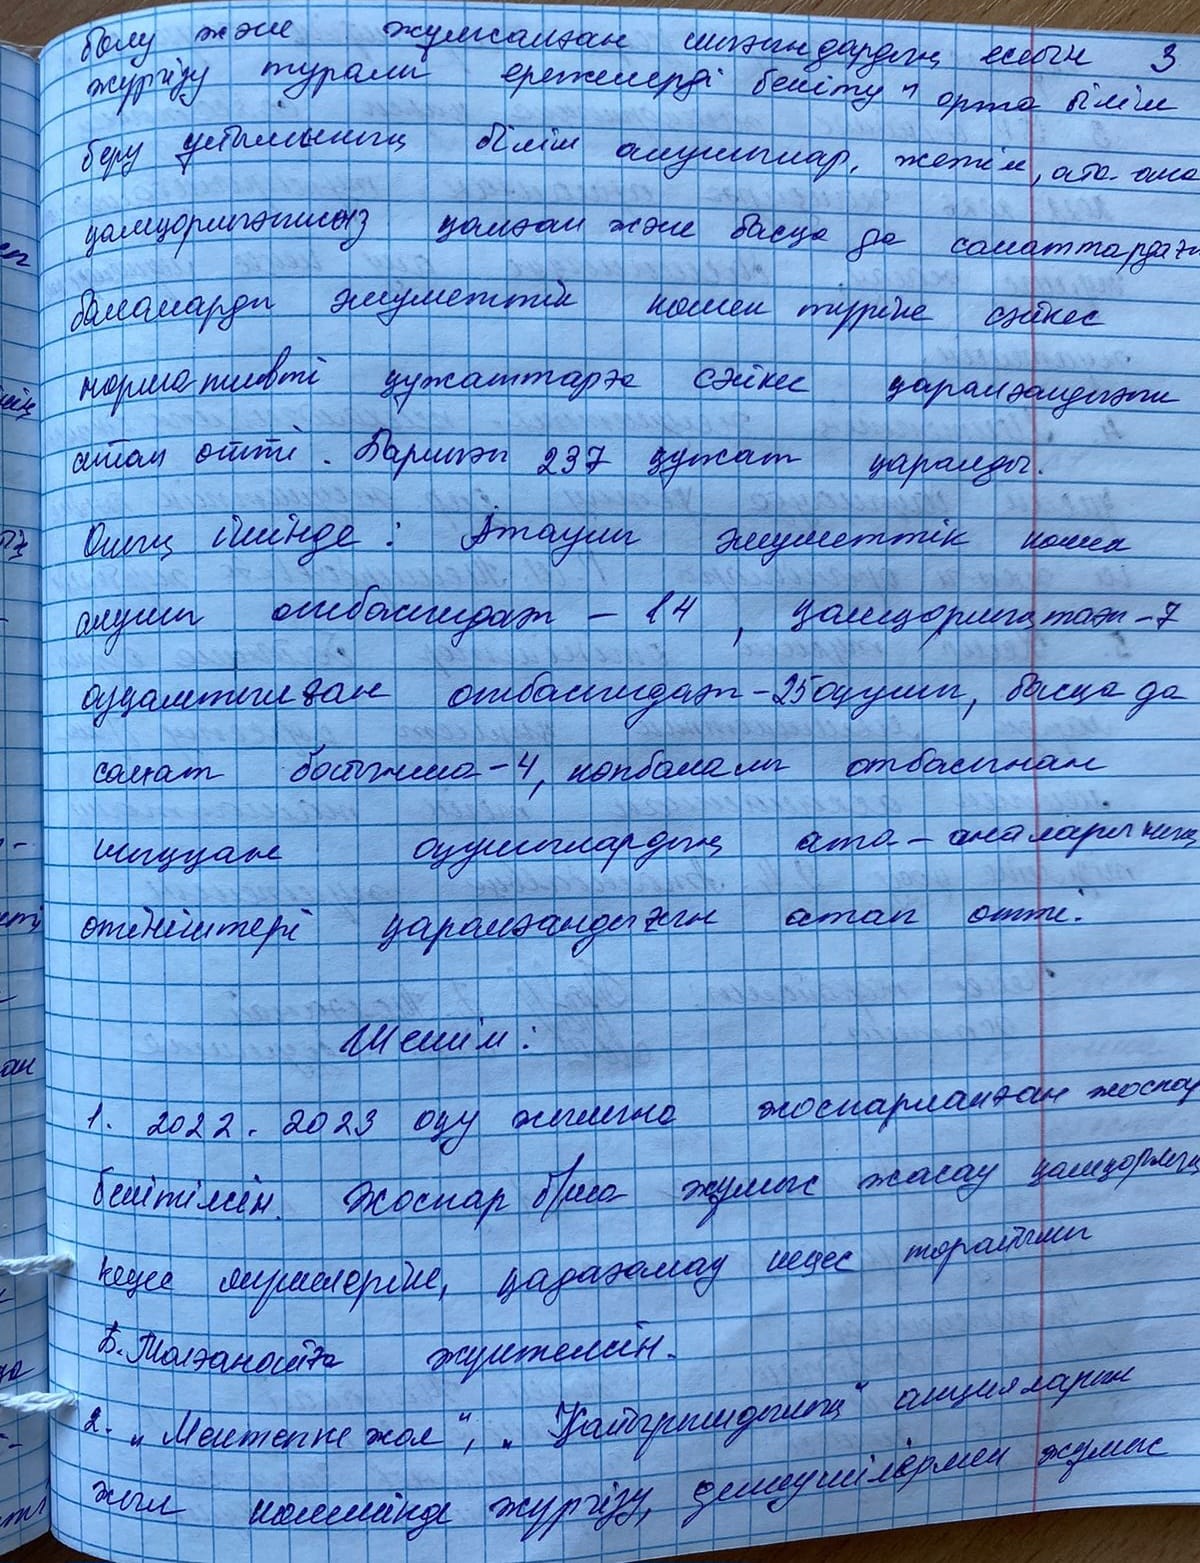 болу және жұмсалған шығындардың есебін 3
жүргізу туралы ережелерді бекіту" орта білім
беру ұйымының білім алушылар, жетім, ата-ана
қамқорлығынсыз қалған және басқа да санаттардағы
балаларды әлуметтік көмек түріне сәйкес
нормативті құжаттарға сәйкес қаралғандығын
атап өтті. Барлығы 237 құжат қаралды.
Оның ішінде: Атаулы әлуметтік көмек
алушы отбасыдағы – 14, қамқорлықтағы – 7
оқшалтылған отбасыдағы – 25 оқушы, басқа да
санат бойынша – 4, көпбалалы отбасынан
шыққан оқушылардың ата – аналарының
өтініштері қаралғандығын атап өтті.
Шешім:
1. 2022-2023 оқу жылына жоспарланған жоспар
бекітілсін. Жоспар б/ша жұмыс жасау қамқорлық
кеңес мүшелеріне, қадағалау кеңес төрайымы
Б. Молғанойға жүктелсін.
2. „Мектепке жол", „Қайырымдылық" акцияларын
жыл көлемінде жүргізу, демеушілермен жұмыс